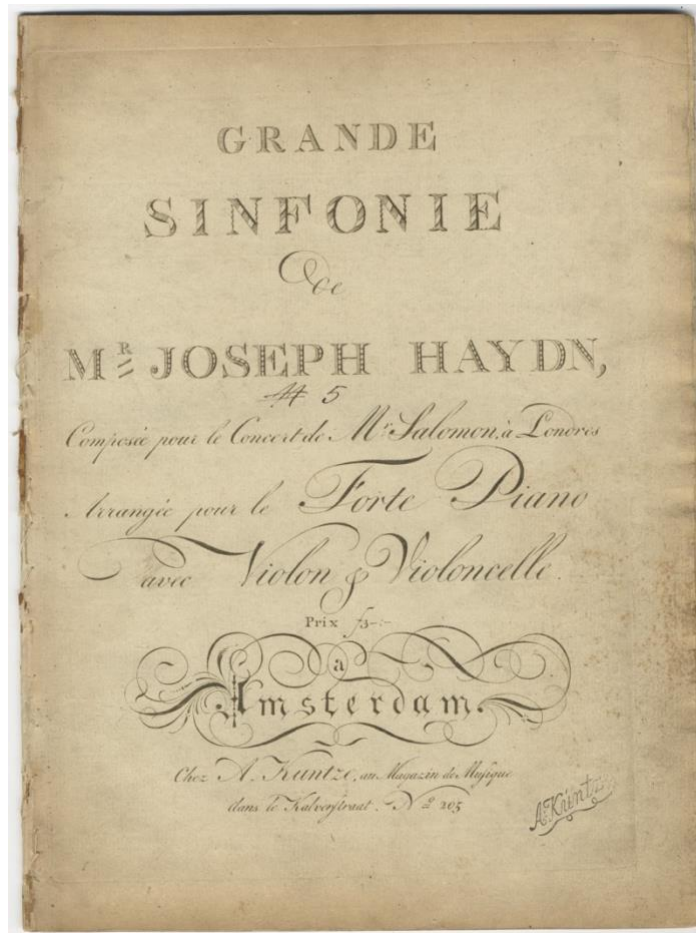 GRANDE
SINFONIE
De
Mr. JOSEPH HAYDN,
# 5
Composée pour le Concert de Mr. Salomon, à Londres
Arrangée pour le Forte Piano
avec Violon & Violoncelle.
Prix f3-:-
a
Amsterdam.
Chez A. Kuntze, au Magazin de Musique
dans le Kalverstraat. No 205
A. Kuntze